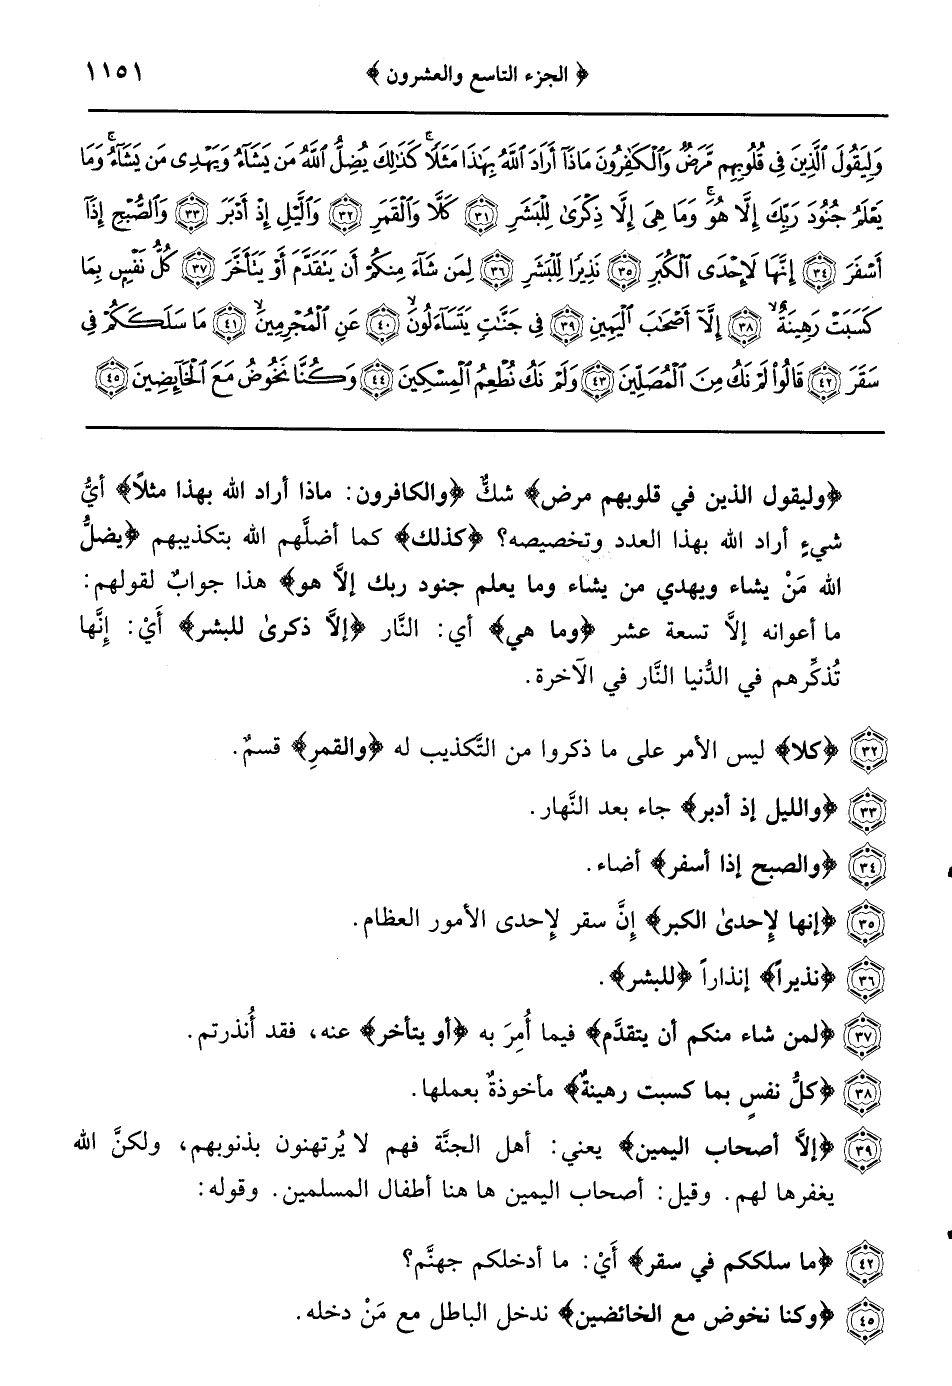 ﴿ الجزء التاسع والعشرون ﴾ ١١٥١
وَلِيَقُولَ ٱلَّذِينَ فِى قُلُوبِهِم مَّرَضٌ وَٱلْكَٰفِرُونَ مَاذَآ أَرَادَ ٱللَّهُ بِهَٰذَا مَثَلًا ۚ كَذَٰلِكَ يُضِلُّ ٱللَّهُ مَن يَشَآءُ وَيَهْدِى مَن يَشَآءُ ۚ وَمَا
يَعْلَمُ جُنُودَ رَبِّكَ إِلَّا هُوَ ۚ وَمَا هِىَ إِلَّا ذِكْرَىٰ لِلْبَشَرِ ﴿٣١﴾ كَلَّا وَٱلْقَمَرِ ﴿٣٢﴾ وَٱلَّيْلِ إِذْ أَدْبَرَ ﴿٣٣﴾ وَٱلصُّبْحِ إِذَآ
أَسْفَرَ ﴿٣٤﴾ إِنَّهَا لَإِحْدَى ٱلْكُبَرِ ﴿٣٥﴾ نَذِيرًا لِّلْبَشَرِ ﴿٣٦﴾ لِمَن شَآءَ مِنكُمْ أَن يَتَقَدَّمَ أَوْ يَتَأَخَّرَ ﴿٣٧﴾ كُلُّ نَفْسٍۭ بِمَا
كَسَبَتْ رَهِينَةٌ ﴿٣٨﴾ إِلَّآ أَصْحَٰبَ ٱلْيَمِينِ ﴿٣٩﴾ فِى جَنَّٰتٍ يَتَسَآءَلُونَ ﴿٤٠﴾ عَنِ ٱلْمُجْرِمِينَ ﴿٤١﴾ مَا سَلَكَكُمْ فِى
سَقَرَ ﴿٤٢﴾ قَالُوا۟ لَمْ نَكُ مِنَ ٱلْمُصَلِّينَ ﴿٤٣﴾ وَلَمْ نَكُ نُطْعِمُ ٱلْمِسْكِينَ ﴿٤٤﴾ وَكُنَّا نَخُوضُ مَعَ ٱلْخَآئِضِينَ ﴿٤٥﴾
﴿وليقول الذين في قلوبهم مرض﴾ شكٌّ ﴿والكافرون: ماذا أراد الله بهذا مثلاً﴾ أيُّ
شيءٍ أراد الله بهذا العدد وتخصيصه؟ ﴿كذلك﴾ كما أضلَّهم الله بتكذيبهم ﴿يضلُّ
الله مَنْ يشاء ويهدي من يشاء وما يعلم جنود ربك إلاَّ هو﴾ هذا جوابٌ لقولهم:
ما أعوانه إلاَّ تسعة عشر ﴿وما هي﴾ أي: النَّار ﴿إلاَّ ذكرىٰ للبشر﴾ أَيْ: إنَّها
تُذكِّرهم في الدُّنيا النَّار في الآخرة.
﴿٣٢﴾ ﴿كلا﴾ ليس الأمر على ما ذكروا من التَّكذيب له ﴿والقمرِ﴾ قسمٌ.
﴿٣٣﴾ ﴿والليل إذ أدبر﴾ جاء بعد النَّهار.
﴿٣٤﴾ ﴿والصبح إذا أسفر﴾ أضاء.
﴿٣٥﴾ ﴿إنها لإِحدىٰ الكبر﴾ إنَّ سقر لإِحدى الأمور العظام.
﴿٣٦﴾ ﴿نذيراً﴾ إنذاراً ﴿للبشر﴾.
﴿٣٧﴾ ﴿لمن شاء منكم أن يتقدَّم﴾ فيما أُمِرَ به ﴿أو يتأخر﴾ عنه، فقد أُنذرتم.
﴿٣٨﴾ ﴿كلُّ نفسٍ بما كسبت رهينةٌ﴾ مأخوذةٌ بعملها.
﴿٣٩﴾ ﴿إلاَّ أصحاب اليمين﴾ يعني: أهل الجنَّة فهم لا يُرتهنون بذنوبهم، ولكنَّ الله
يغفرها لهم. وقيل: أصحاب اليمين ها هنا أطفال المسلمين. وقوله:
﴿٤٢﴾ ﴿ما سلككم في سقر﴾ أَيْ: ما أدخلكم جهنَّم؟
﴿٤٥﴾ ﴿وكنا نخوض مع الخائضين﴾ ندخل الباطل مع مَنْ دخله.